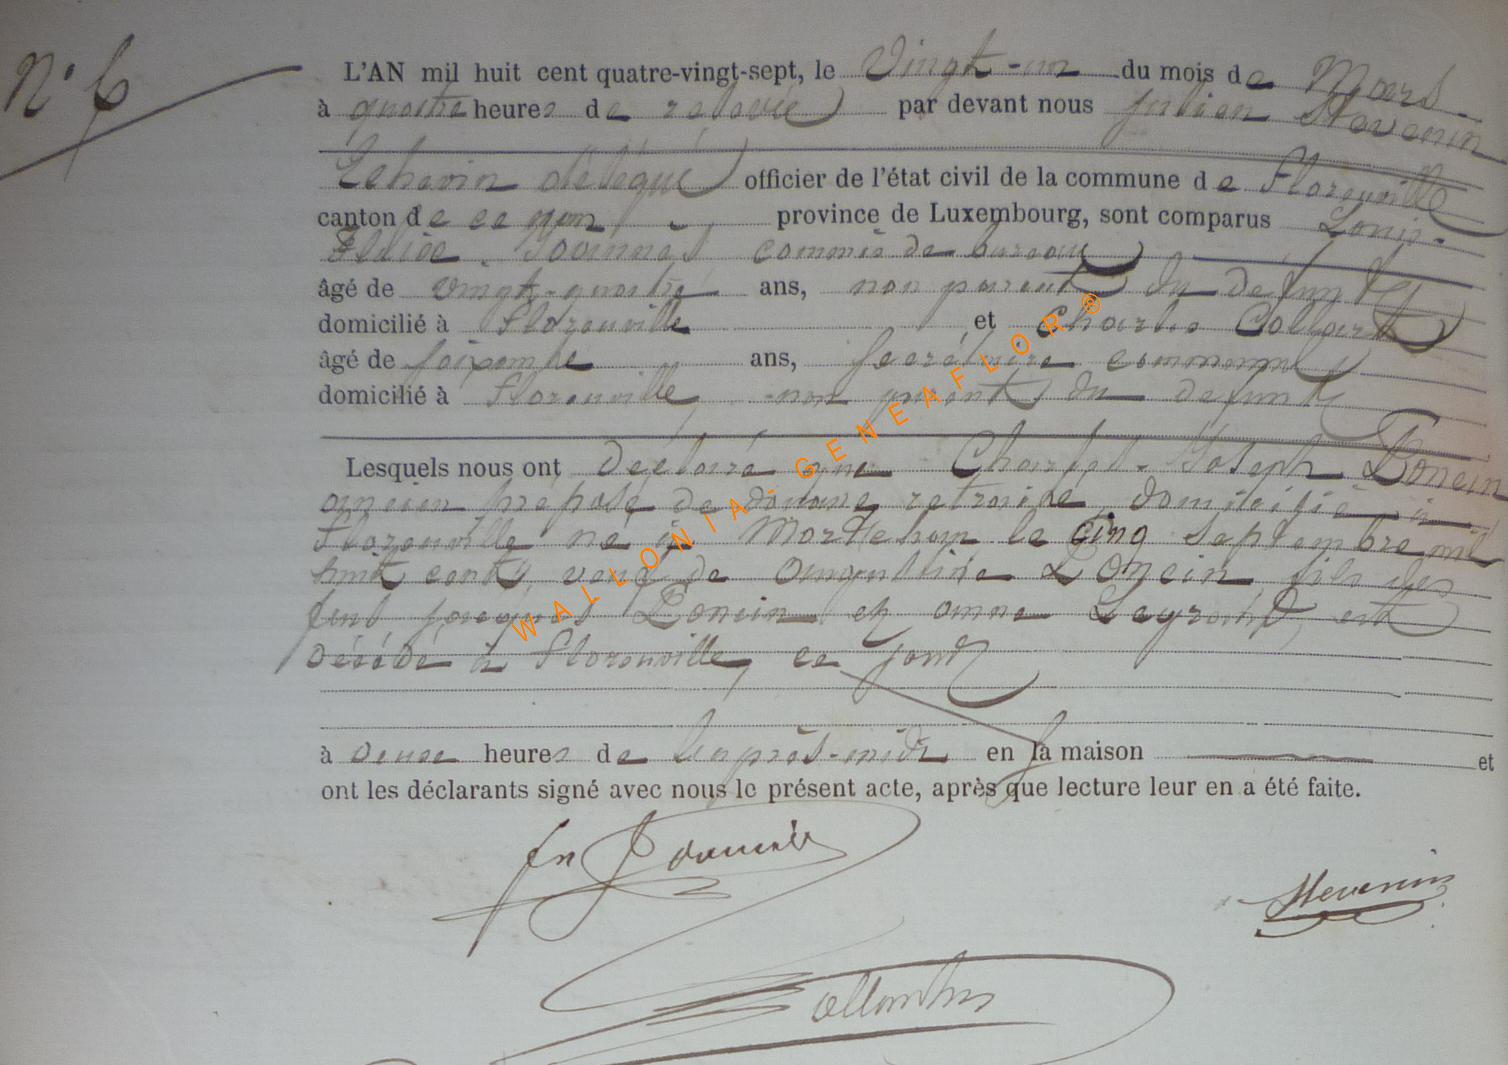 N° 6
L'AN mil huit cent quatre-vingt-sept, le Vingt-un du mois de Mars
à quatre heures de relevée par devant nous Julien Stevenin
Echevin délégué officier de l'état civil de la commune de Florenville
canton de ce nom province de Luxembourg, sont comparus Louis-
commis de bureau
âgé de vingt-quatre ans, non parent du défunt
domicilié à Florenville et Charles Collart
âgé de soixante ans, secrétaire communal
domicilié à Florenville, non parent du defunt
Lesquels nous ont déclaré que Charles-Joseph Poncin
ancien préposé de douane retraité, domicilié à
Florenville né à Mortehan le cinq septembre mil
huit cent, veuf de Augustine Poncin fils des
feus Jacques Poncin et anne est
décédé à Florenville, ce jourd
à deux heures de l'après-midi en sa maison et
ont les déclarants signé avec nous le présent acte, après que lecture leur en a été faite.
Stevenin
WALLONIA-GENEAFLOR®